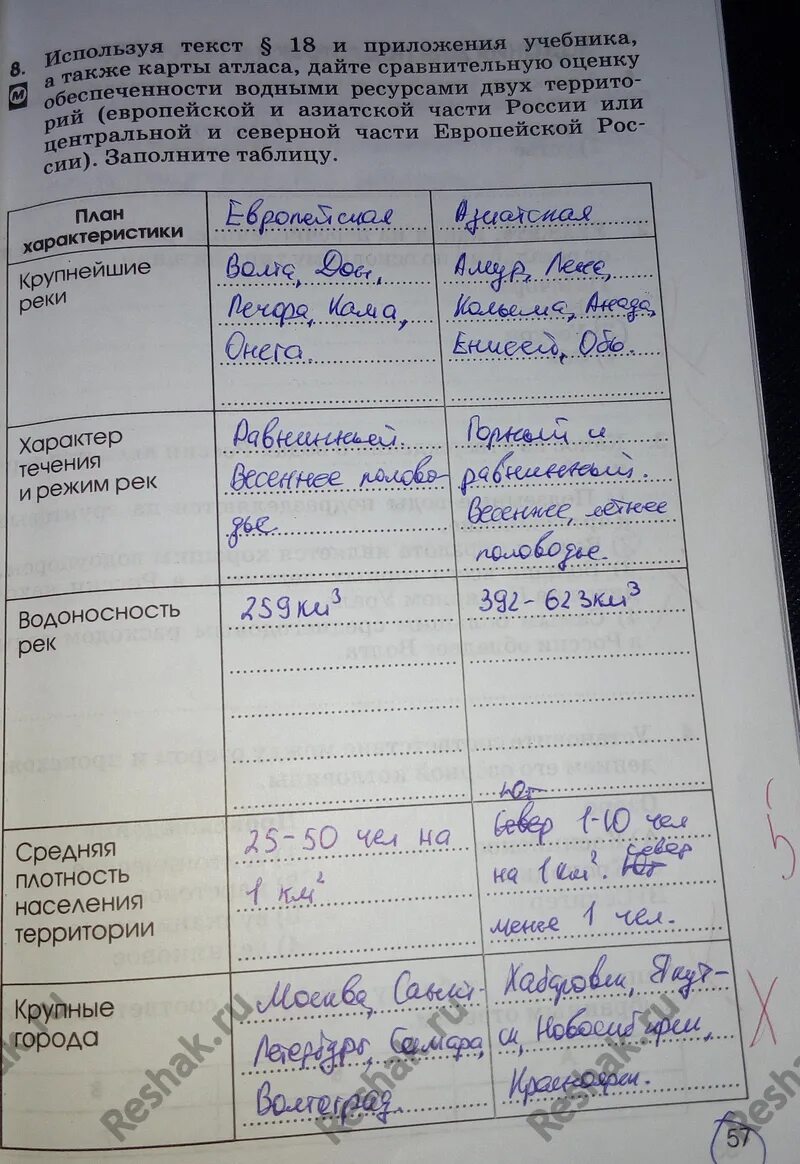 8. Используя текст § 18 и приложения учебника,
а также карты атласа, дайте сравнительную оценку
обеспеченности водными ресурсами двух террито-
рий (европейской и азиатской части России или
центральной и северной части Европейской Рос-
сии). Заполните таблицу.
План
характеристики
Европейская
Азиатская
Крупнейшие
реки
Волга, Дон,
Печора, Кама,
Онега.
Амур, Лена,
Колыма, Анада,
Енисей, Обь.
Характер
течения
и режим рек
Равнинный.
Весеннее полово-
дье.
Горный и
равнинный.
Весеннее, летнее
половодье.
Водоносность
рек
259 км³
392-623км³
Средняя
плотность
населения
территории
25-50 чел на
1 км²
Юг
1-10 чел
на 1 км². север
менее 1 чел.
Крупные
города
Москва, Санкт-
Петербург, Самара,
Волгоград.
Хабаровск, Якут-
ск, Новосибирск,
Красноярск.
57
Reshak.ru
Reshak.ru
Reshak.ru